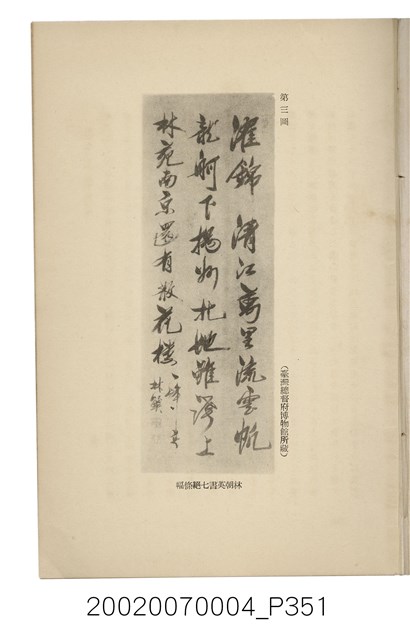 第三圖
(臺灣總督府博物館所藏)
濯錦清江萬里流雲帆
龍舸下揚州北地雖誇上
林苑南京還有散花樓 一峰亭
林朝英書七絕條幅
20020070004_P351